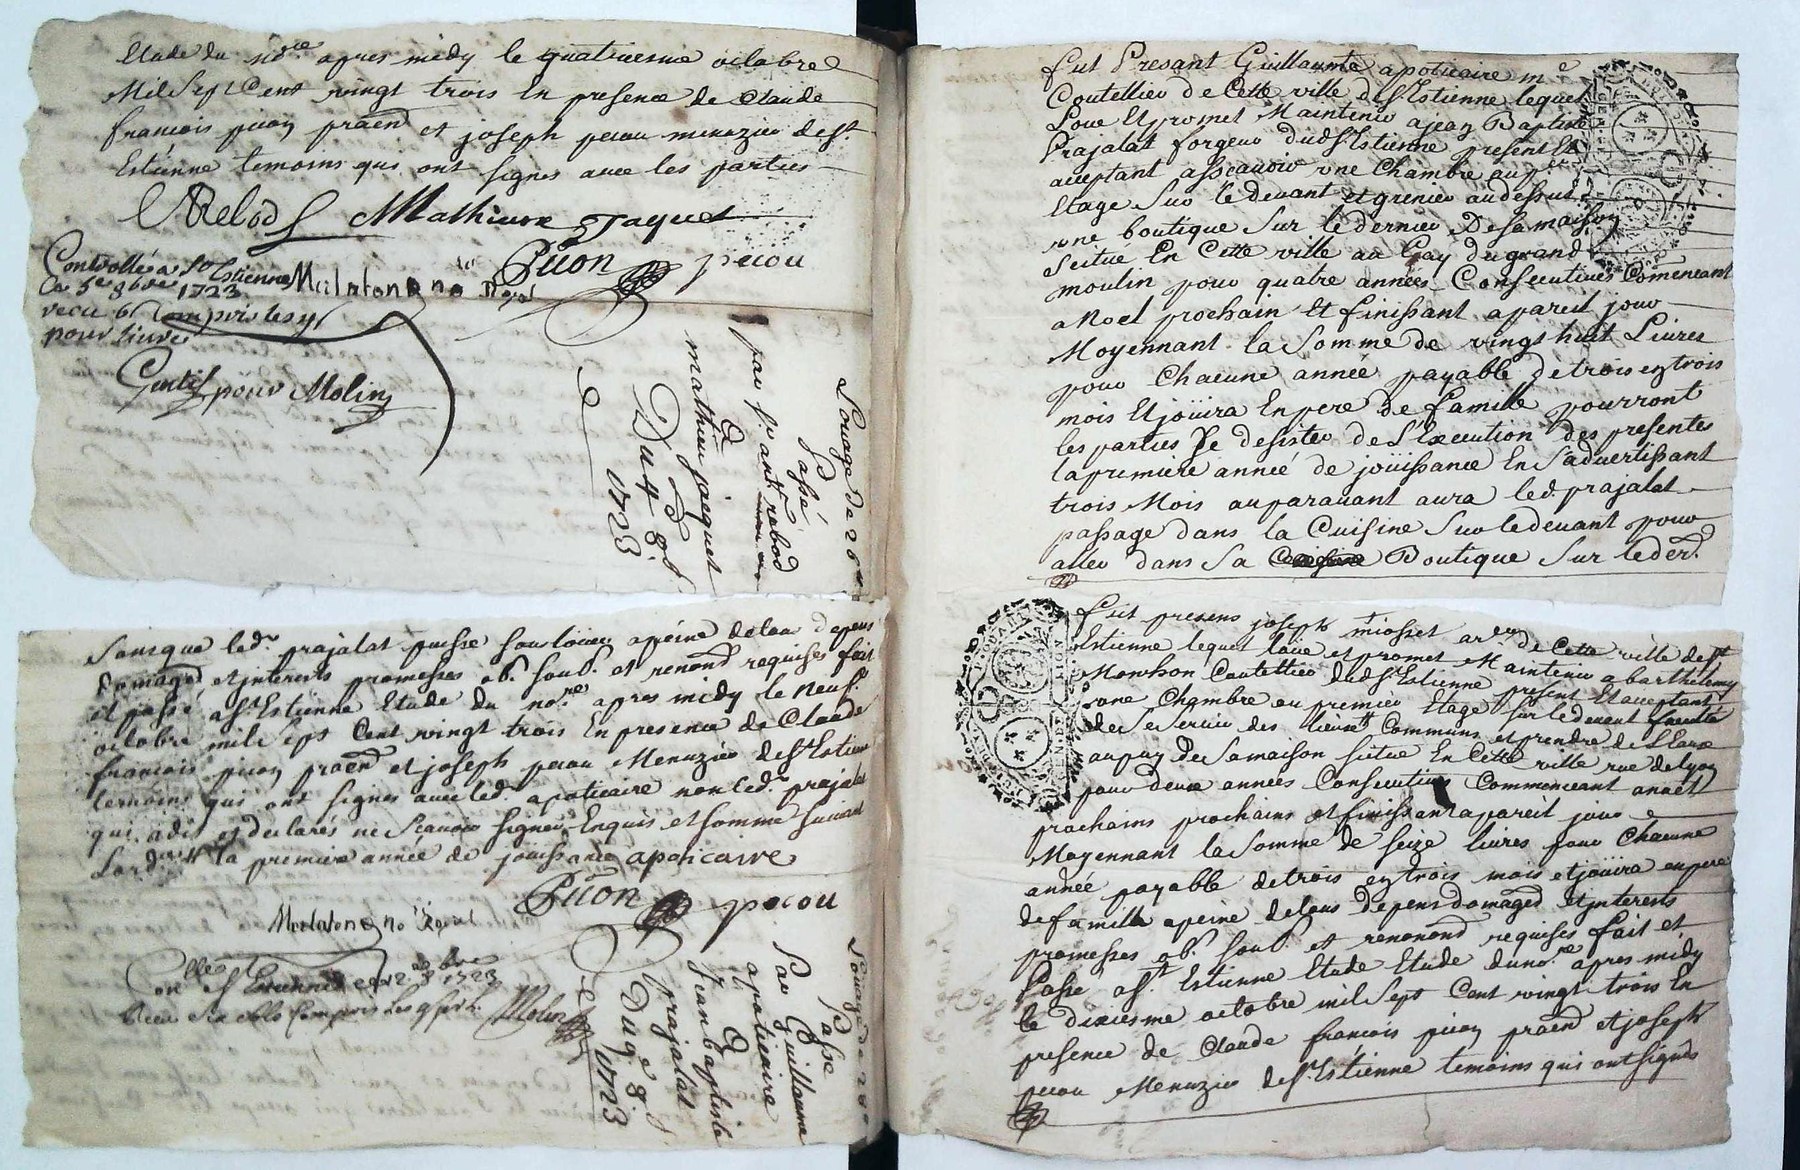 Etude du no.re apres midy le quatriesme octobre
Mil Sept Cent vingt trois En presence de Claude
francois picon pratnd et joseph pecou menuzier de st
Estienne temoins qui ont signes avec les parties
ARebod Mathieux Jaquet
Picon pecou
Controllé a St Estienne
Ce 5e 8bre 1723
recu 6s Compris les 4s
pour livre
Gentil pour Molin
Louage De 26tt
Passé
par sr ant. rebod
a
mathieu jacquet
Du 4 8b.
1723
Sans que led. prajalat puisse souslouer a peine de tous depens
Domages et interests promesses ob. soub. et renond requises fait
et passé a st Estienne Etude du no.re apres midy le neuf.e
octobre mil sept Cent vingt trois En presence de Claude
francois picon pratnd et joseph pecou Menuzier de St Estienne
temoins qui ont signes avec led. apoticaire non led. prajalat
qui a dit et declarés ne scavoir signer Enquis et somme suivant
Lord. la premiere année de joüissance apoticaire
Picon pecou
Con.lle a St Estienne ce 12 8bre 1723
Recu six sols Compris Les 4s p. L. Molin
Louage de 28tt
Passé
Par Guillaume
apoticaire
a
Jean baptiste
prajalat
Du 9 8b.
1723
fut Presant Guillaume apoticaire me
Coutellier de Cette ville de st Estienne lequel
Loue Et promet Maintenir a jean Baptiste
Prajalat forgeur dud st Estienne present Et
acceptant asscavoir une Chambre au p.er
Etage sur le devant et grenier au dessus
une boutique sur le dernier De sa maison
Scitué En Cette ville au Gay du grand
moulin pour quatre années Consecutives Comencant
a Noel prochain Et finissant a pareil jour
Moyennant la somme de vingt huit Livres
pour Chacune année payable de trois en trois
mois Et joüira En pere de famille pourront
les parties se desister de l'Execution des presentes
la premiere année de joüissance En s'advertissant
trois Mois auparavant aura led. prajalat
passage dans la Cuisine sur le devant pour
aller dans sa Boutique sur le der.
fut presens joseph miosset ar.er de Cette ville de st
Estienne lequel loüe et promet Maintenir a barthelemy
Monthon Coutellier dud st Estienne present Et acceptant
une Chambre au premier Etage sur le devant
de se servir des lieux Communs et prendre de Leau
au puy De sa maison scitue En Cette ville rue de Lyon
pour deux années Consecutives Commencant a noel
prochains prochains et finissant a pareil jour
Moyennant la somme de seize livres pour Chacune
année payable de trois en trois mois et joüira en pere
de famille a peine de tous Depens domages Et interests
promesses ob. soub. et renonond requises fait et
Passé a st Estienne Etude Etude du no.re apres midy
le dixiesme octobre mil Sept Cent vingt trois En
presence de Claude francois picon pratnd et joseph
pecou Menuzier de st Estienne temoins qui ont signes